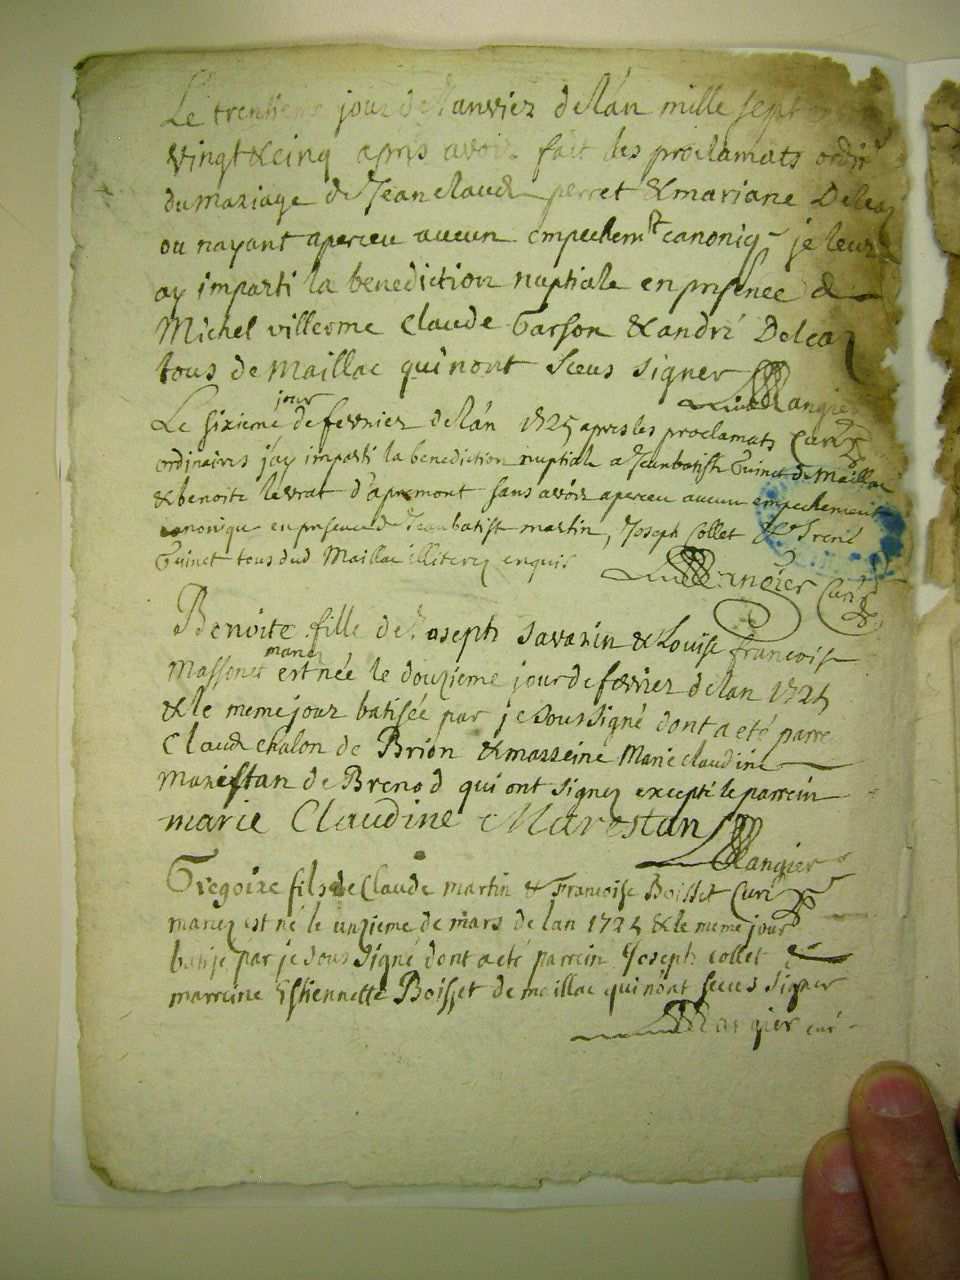 Le trentieme jour de Janvier de lán mille sept
vingt & cinq apres avoir fait les proclamats ordir
du mariage de Jean claude perret & mariane Deleaz
ou nayant aperceu aucun empechemt canoniq je leur
ay imparti la benediction nuptiale en presence de
Michel villerme Claude Garson & andré Deleaz
tous de Maillac qui nont sceus signer
Mangier
curé
jour
Le sixieme de fevrier de lán 1725 apres les proclamats
ordinaires j'ay imparti la benediction nuptiale a Jean batiste Guinet de Maillac
& benoite levrat d'apremont sans avoir aperceu aucun empechement
canonique en presence de Jean batiste martin, Joseph Collet & Irené
Guinet tous dud Maillac illiterez enquis
Mangier Curé
Benoite fille de Joseph Savarin & Louise francoise
mariez
Massonet est née le douzieme jour de fevrier de lan 1725
& le meme jour batisée par je soussigné dont a été parre
Claude chalon de Brion & marreine Marie claudine
Marestan de Brenod qui ont signez excepté le parrein
marie Claudine Marestan
Mangier
Curé
Gregoire fils de Claude martin & Francoise Boisset
mariez est né le unzieme de mars de lan 1725 & le meme jour
batisé par je sous signé dont a eté parrein Joseph collet &
marreine Estiennette Boisset de maillac qui nónt sceus signer
Mangier curé